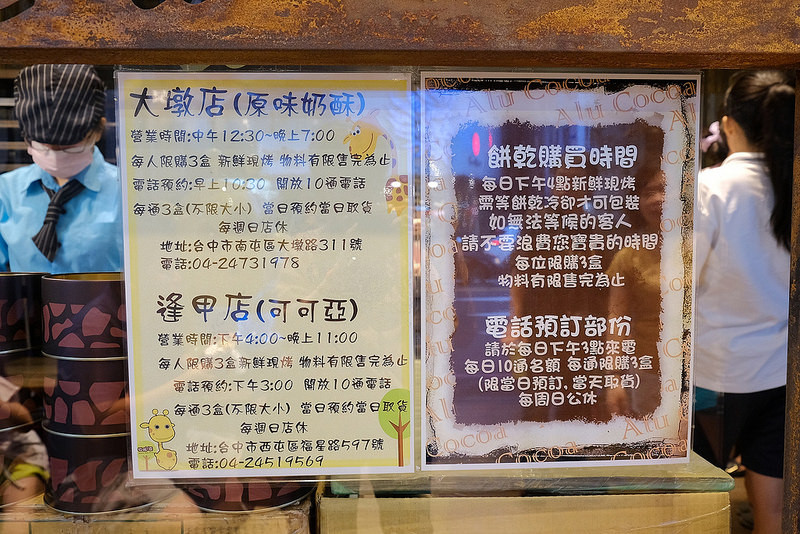 大墩店(原味奶酥)
營業時間:中午12:30~晚上7:00
每人限購3盒 新鮮現烤 物料有限售完為止
電話預約:早上10:30 開放10通電話
每通3盒(不限大小) 當日預約當日取貨
每週日店休
地址:台中市南屯區大墩路311號
電話:04-24731978
逢甲店(可可亞)
營業時間:下午4:00~晚上11:00
每人限購3盒新鮮現烤 物料有限售完為止
電話預約:下午3:00 開放10通電話
每通3盒(不限大小) 當日預約當日取貨
每週日店休
地址:台中市西屯區福星路597號
電話:04-24519569
Alu Cocoa
餅乾購買時間
每日下午4點新鮮現烤
需等餅乾冷卻才可包裝
如無法等候的客人
請不要浪費您寶貴的時間
每位限購3盒
物料有限售完為止
電話預訂部份
請於每日下午3點來電
每日10通名額 每通限購3盒
(限當日預訂, 當天取貨)
每周日公休
Alu
Cocoa